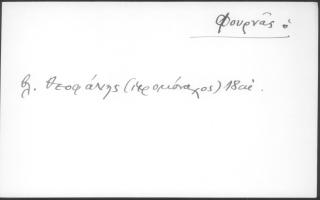 Φουρνᾶς ὁ
βλ. Θεοφάνης (ἱερομόναχος) 18 αἰ.